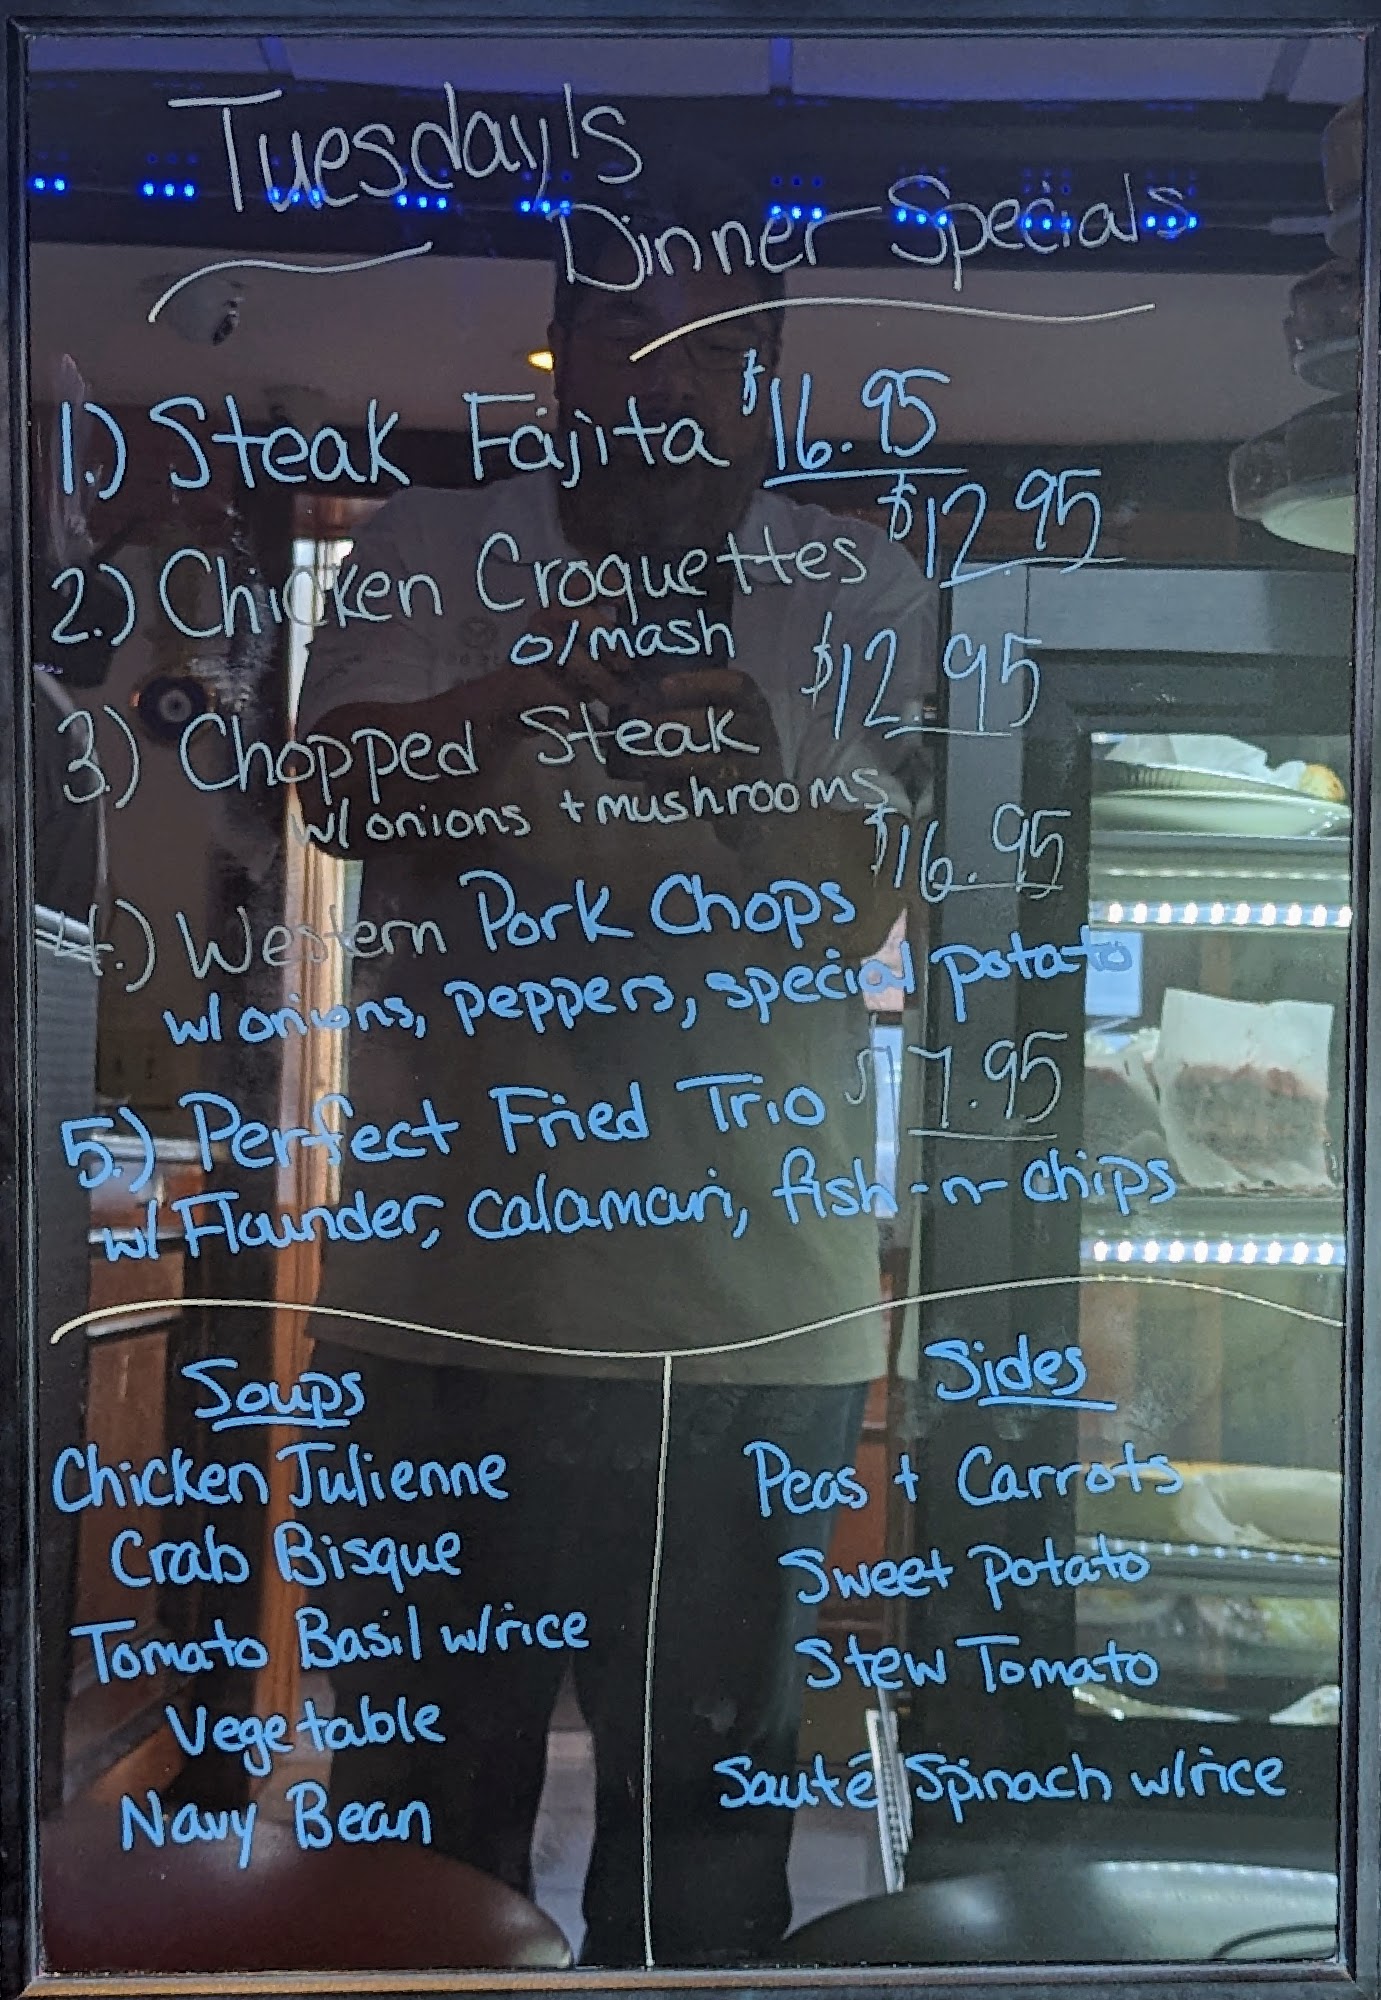 Tuesday's
Dinner Specials
1.) Steak Fajita $16.95
2.) Chicken Croquettes $12.95
o/mash
3.) Chopped Steak $12.95
w/ onions + mushrooms
4.) Western Pork Chops $16.95
w/ onions, peppers, special potato
5.) Perfect Fried Trio $17.95
w/ Flounder, calamari, fish-n-chips
Soups
Chicken Julienne
Crab Bisque
Tomato Basil w/rice
Vegetable
Navy Bean
Sides
Peas + Carrots
Sweet Potato
Stew Tomato
Sauté Spinach w/rice